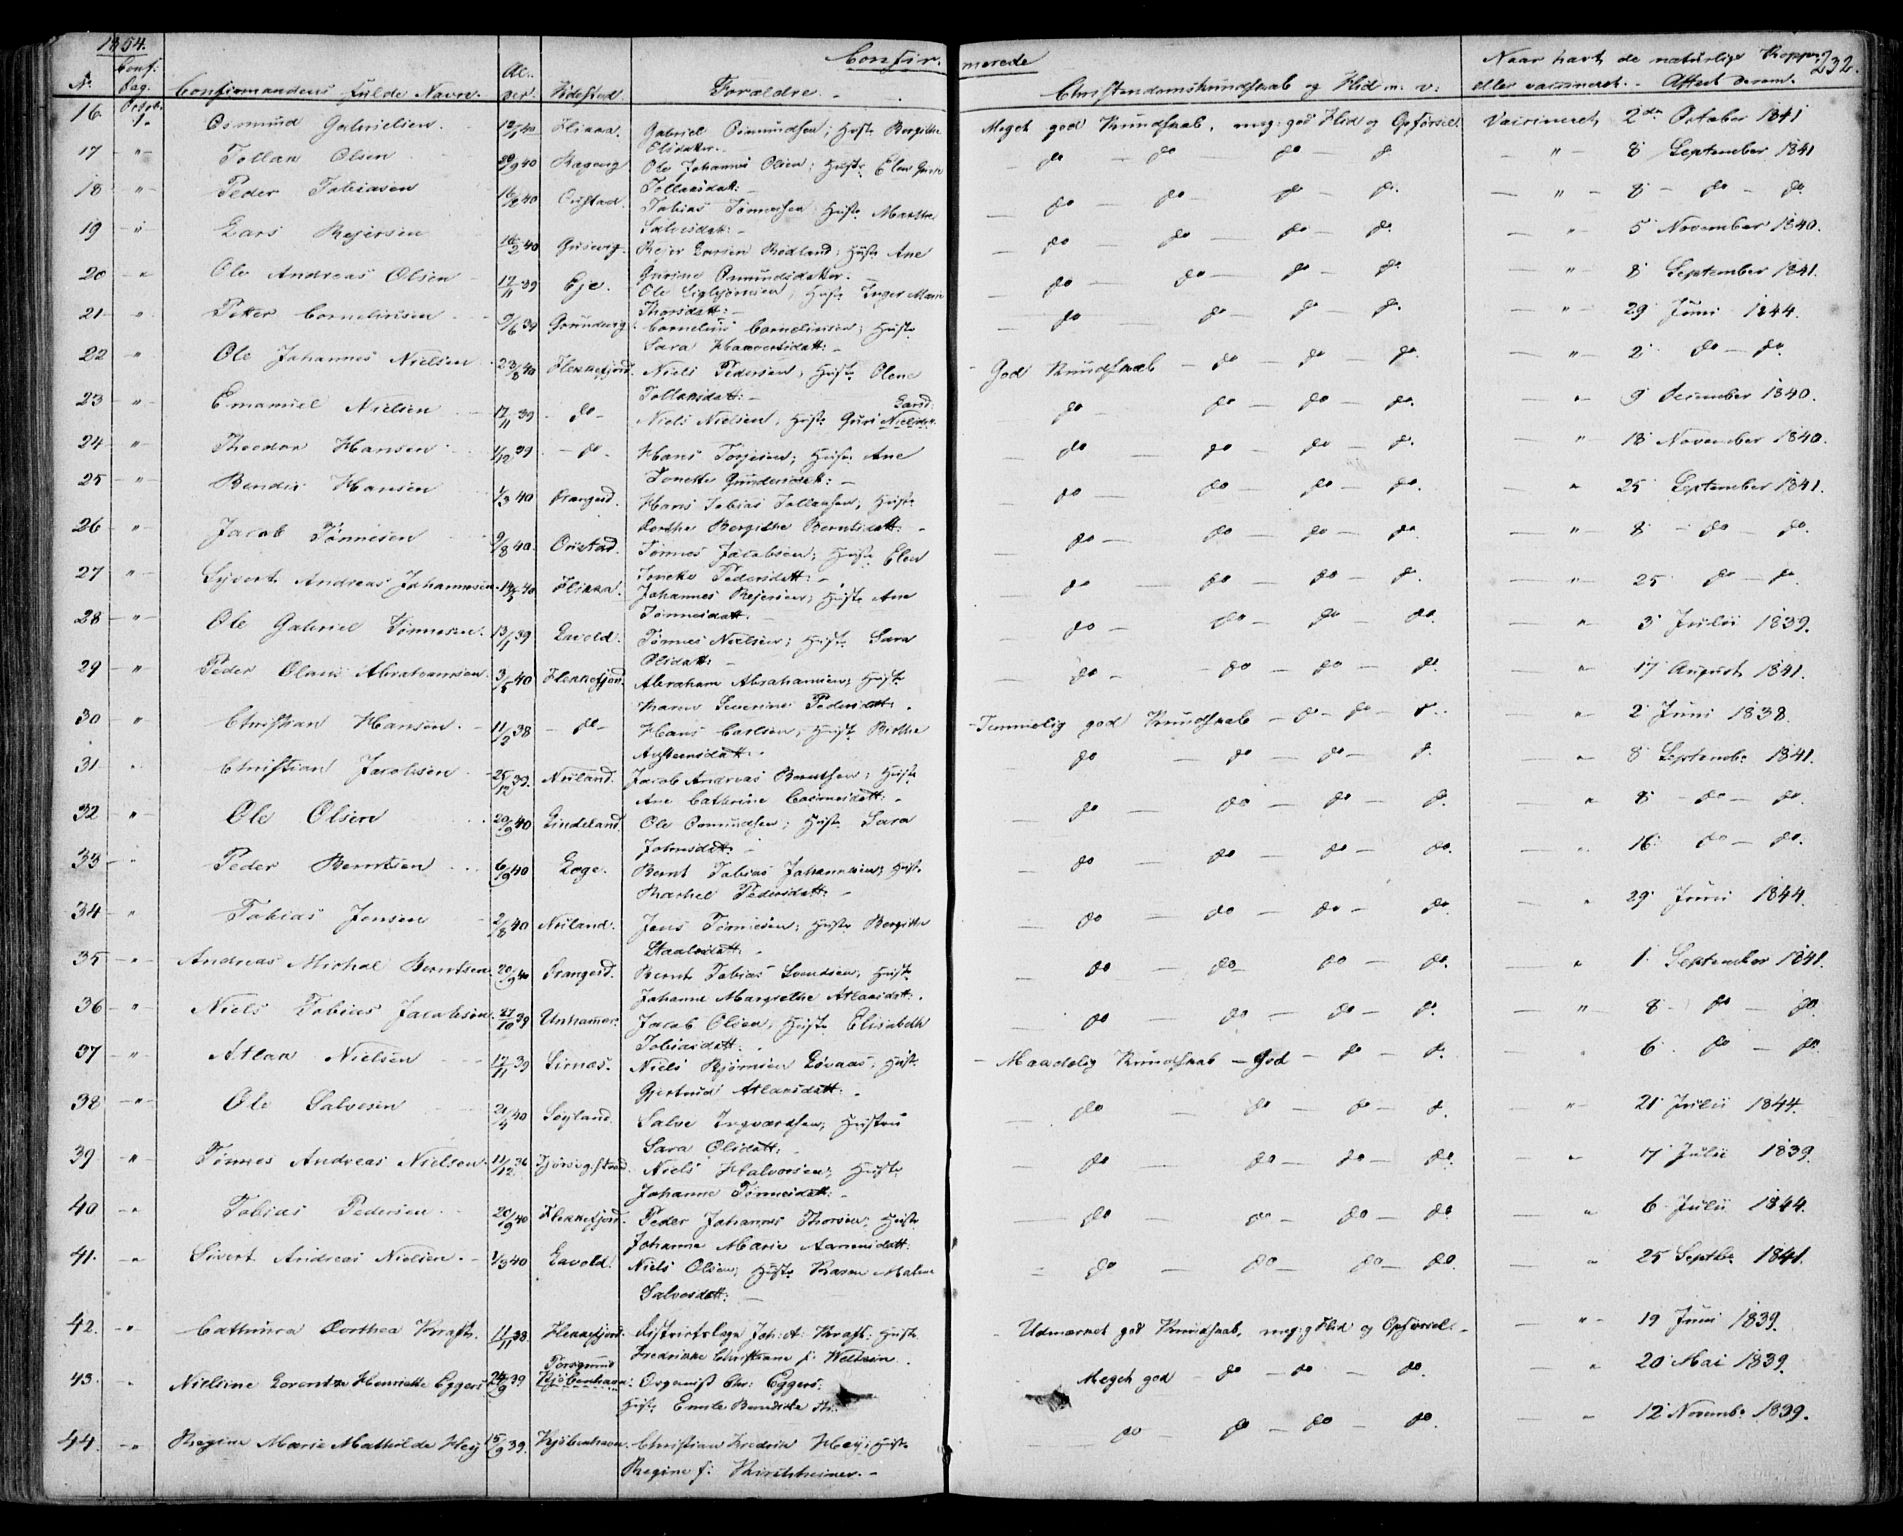 1854.
Confir- merede
232.
No Conf: Dag. Confirmandens fulde Navn. Al- der. Fødested. Forældre. Christendomskundskab og Flid m: v: Naar havt de naturlige Kopper eller vaccineret. Attest derom.
16 Octob. 1. Osmund Gabrielsen 12/1 40 Flikka. Gabriel Osmundsen; Hustr. Bergithe Meget god Kundskab, meg: god Flid og Opførsel. Vaccineret, 2den October 1841
Olisdater.
17 " Tollak Olsen 20/9 40 Ole Johannes Olsen; Hustr. Elen Gurine do do do d. " 8 September 1841
Tollaksdatt:
18 " Peder Tobiasen 16/2 40 Oustad. Tobias Tønnesen; Hustr. Marthe do do do do. " 8 do do.
Salvesdatt:
19 " Lars Rejersen 16/2 40 Rejer Larsen Rødland; Hustr. Ane do do do do. " 5 November 1840.
Gurine Osmundsdater.
20 " Ole Andreas Olsen 17/11 39 Eje. Ole Sigbjørnsen; Hustr. Inger Marie do do do do. " 8 September 1841.
Thorsdatt:
21 " Peter Corneliusen 9/6 39 Grundvig. Cornelius Corneliusen; Hustr. do do do do. " 29 Juni 1844.
Sara Haaversdatt:
22 " Ole Johannes Nielsen 23/8 40 Flekkefjord. Niels Pedersen; Hustr. Olene God Kundskab do do do. " 2 do do.
Tollaksdatt:
23 " Emanuel Nielsen 17/11 39 do Niels Nielsen, Hustr. Guri Nielsdat. do do do do. " 9 December 1840.
24 " Theodor Hansen 1/12 39 do Hans Torjesen; Hustr. Ane do do do d. " 18 November 1840.
Tonette Gundersdatt:
25 " Bendix Hansen 1/3 40 Drangeid. Hans Tobias Tollaksen, Hustr. do do do do. " 25 September 1841.
Dorthe Bergithe Berntsdatt:
26 " Jacob Tønnesen 9/8 40. Oustad. Tønnes Jacobsen; Hustr. Elen do do do do. " 8 do do.
Pedersdatt:
27 " Syvert Andreas Johannesen 14/5 40 Flikka. Johannes Rejersen; Hustr. Ane do do do d. " 25 do do.
Tønnesdatt.
28 " Ole Gabriel Tønnesen 13/1 39 Lavold. Tønnes Nielsen; Hustr. Sara do do do do. " 3 Julii 1839.
Olisdatt:
29 " Peder Olaus Abrahamsen 3/5 40 Flekkefjord. Abraham Abrahamsen; Hustr. do do do do. " 17 August 1841.
Maren Severine Pedersdatt.
30 " Christian Hansen 11/2 38 do Hans Carlsen; Hustr. Birthe Temmelig god Kundskab do do d. " 2 Juni 1838.
Aufteensdatt.
31 " Christian Jacobsen 25/12 39. Nuland. Jacob Andreas Berntsen; Hustr. do do do d. " 8 Septembr. 1841.
Ane Cathrine Casmesdatt:
32 " Ole Olsen 20/9 40 Lindeland. Ole Osmundsen; Hustr. Sara do do do d. " 8 do do.
Johnsdatt:
33 " Peder Berntsen 6/9 40 Loge. Bernt Tobias Johannesen; Hustr. do do do do. " 16 do do.
Rachel Pedersdatt:
34 " Tobias Jensen 2/8 40 Nuland. Jens Tønnesen; Hustr. Bergithe do do do do. " 29 Juni 1844.
35 " Andreas Michal Berntsen 20/9 40 Drangeid. Bernt Tobias Svendsen; Hustr. do do do do. " 1 September 1841.
Johanne Margrethe Atlaksdatt:
36 " Niels Tobias Jacobsen. 27/10 39 Unhammer. Jacob Olsen, Hustr. Elisabeth do do do d. " 8 do do.
Tobiasdatt:
37 " Atlak Nielsen 17/11 39 Sirnæs. Niels Bjørnsen Løvaas; Hustr. Maadelig Kundskab God do d. " 6 do do.
Gjertrud Atlaksdatt:
38 " Ole Salvesen 21/4 40 Søyland. Salve Ingvardsen; Hustru do do do d. " 21 Julii 1844.
Sara Olisdatt.
39 " Tønnes Andreas Nielsen 11/12 36 Niels Halvorsen; Hustr. do do do do. " 17 Julii 1839.
Johanne Tønnesdatt:
40 " Tobias Pedersen 20/9 40 Flekkefjord. Peder Johannes Thorsen; Hustr. do do do do. " 6 Julii 1844.
Johanne Marie Aanensdatt:
41. " Sivert Andreas Nielsen 1/3 40 Lavold. Niels Olsen; Hustr. Karen Malene do do do do. " 25 Septbr. 1841.
Salvesdatt:
42. " Cathinca Dorthea Kraft. 11/11 38. Flekkefjord. Districtslæge Joh: A: Kraft; Hustr. Udmærket god Kundskab, meg: g. Flid og Opførsel. " 19 Juni 1839.
Fredrikke Christiane f: Weltzin.
Porsgrund
43. " Nielsine Lorentze Henriette Eggers 24/9 39 Kjøbenhavn. Organist Chr: Eggers. Meget god do do do. " 20 Mai 1839.
Hustr. Emilie Benedicte
44. " Regine Marie Mathilde Hey 15/9 39. Kjøbenhavn. Christian Fredrik Hey; Hustr. do do do do. " 12 Novembr. 1839.
Regine f: Kirchheiner.